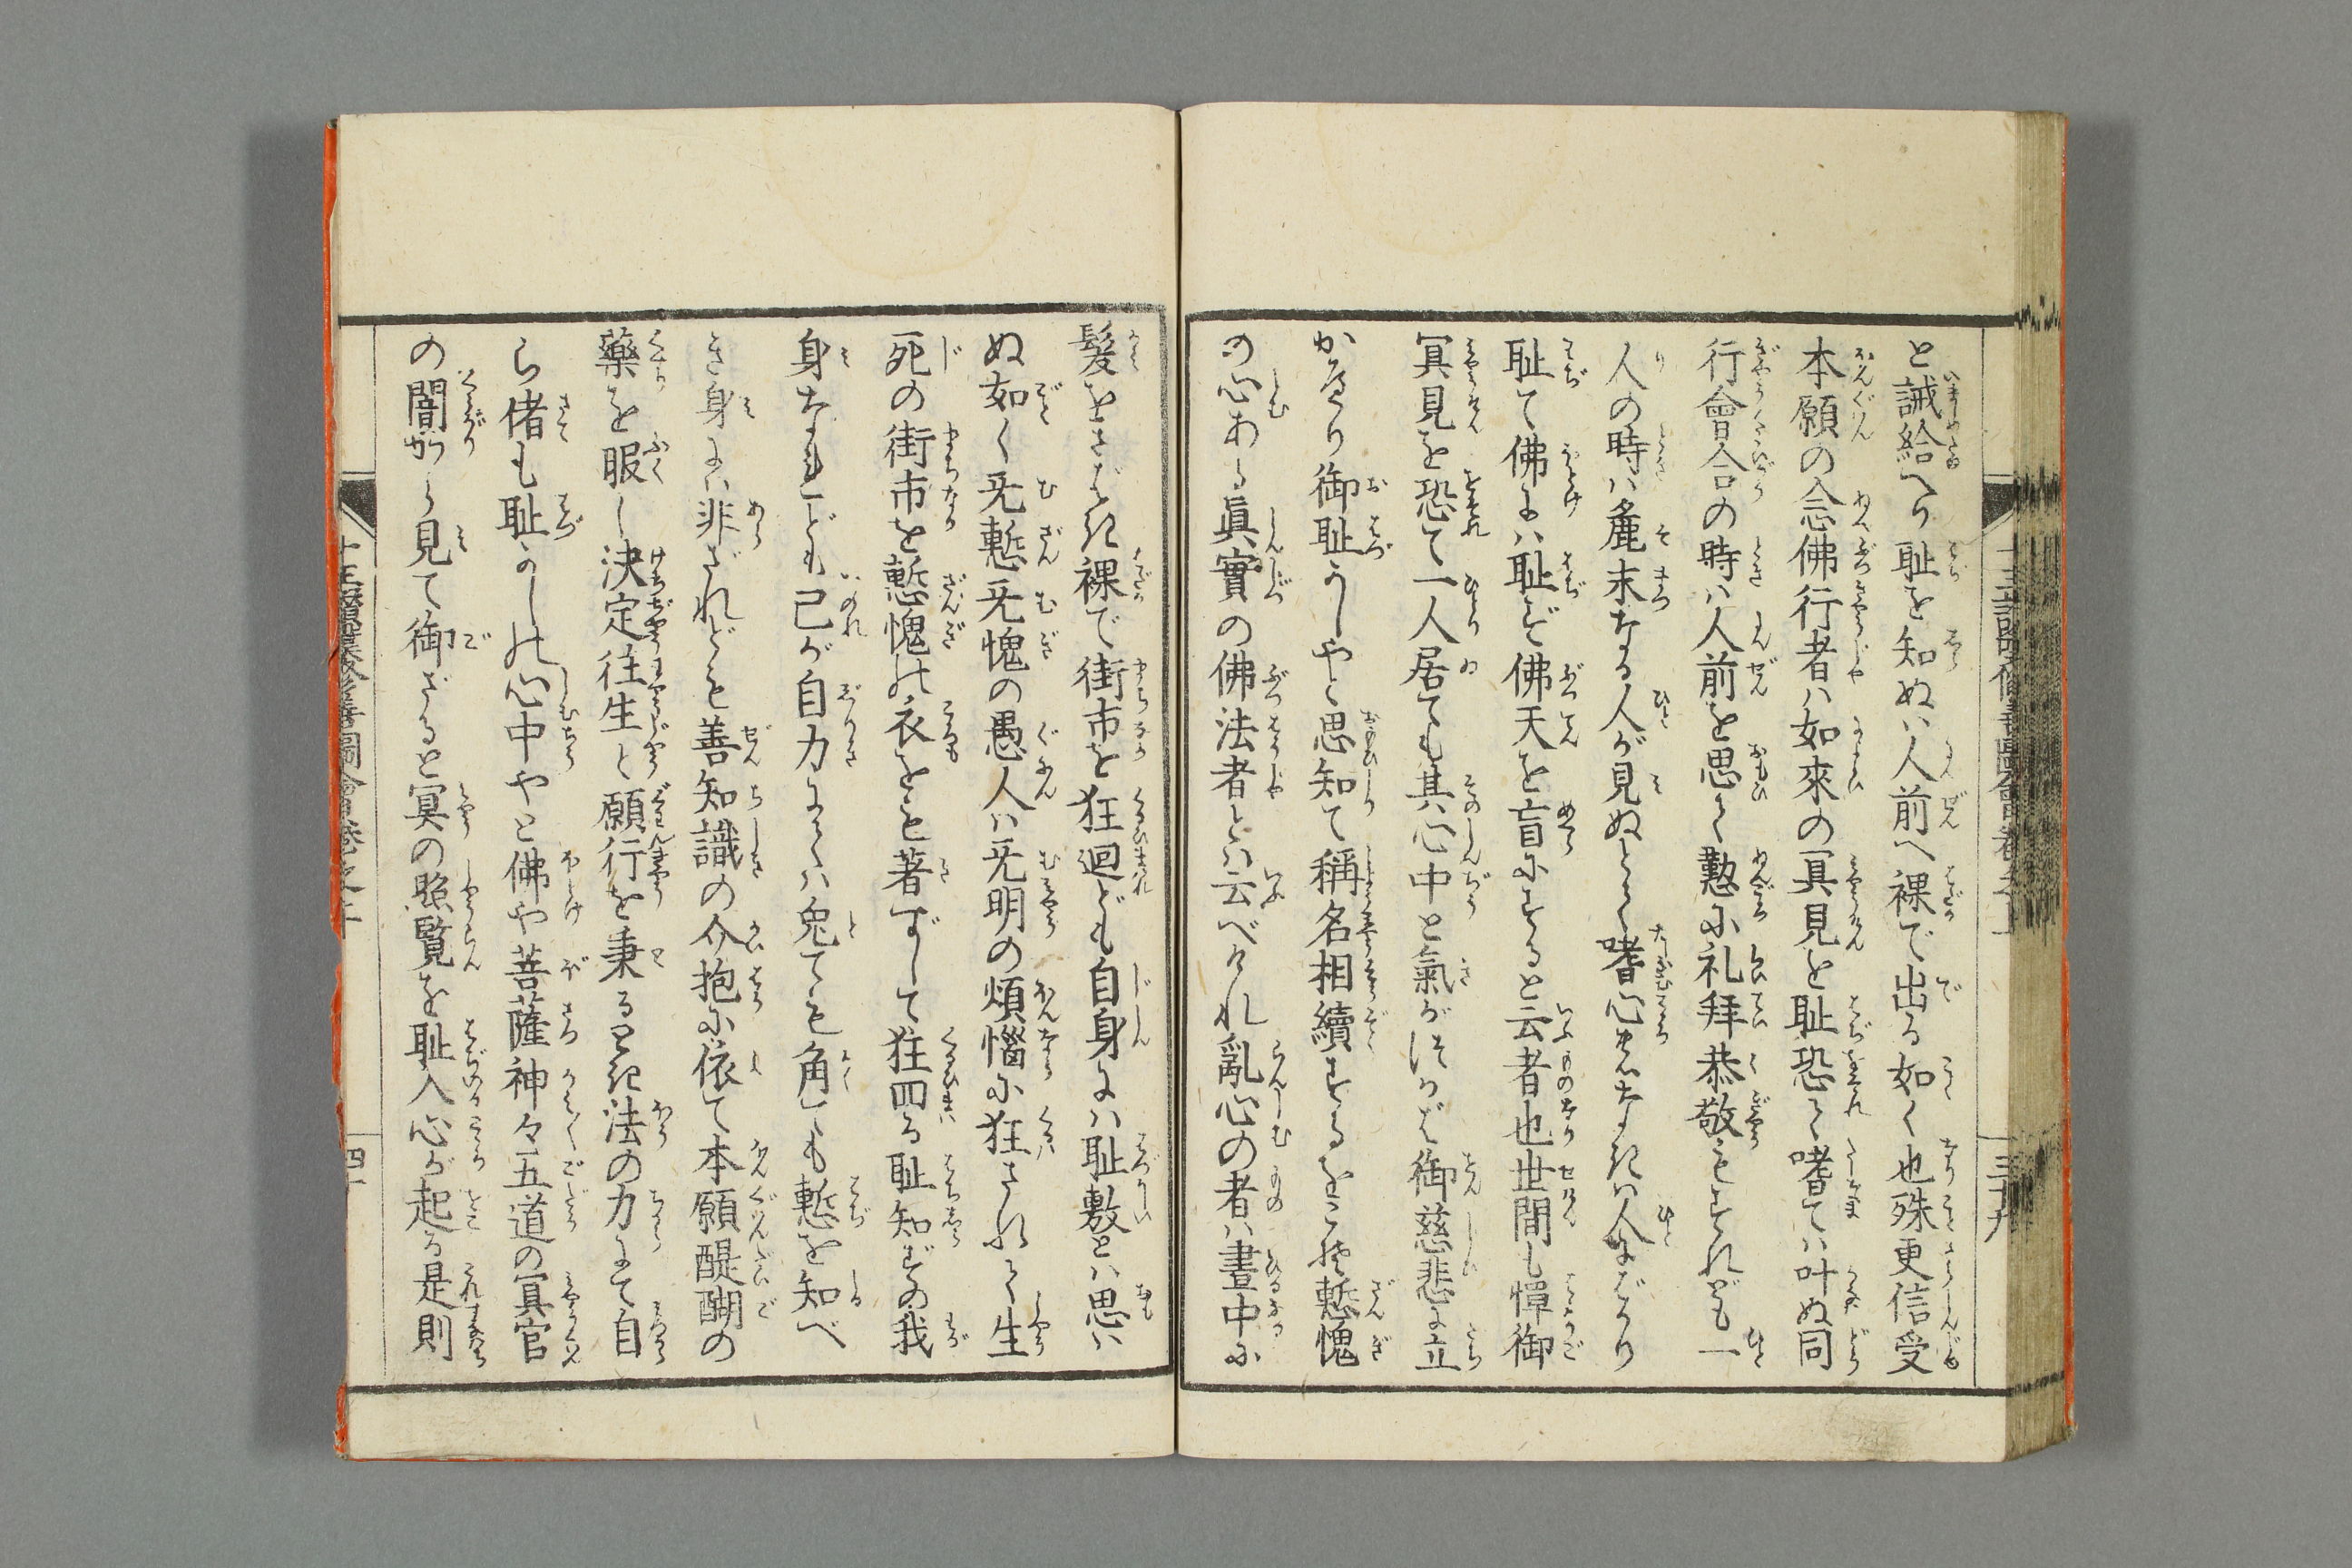 と誡給へり耻を知ぬハ人前へ裸で出る如く也殊更信受
本願の念佛行者ハ如來の冥見を耻恐て嗜てハ叶ぬ同
行會合の時ハ人前を思て懃に礼拜恭敬もすれども一
人の時ハ麁末なる人が見ぬとて嗜心もなきハ人にばかり
耻て佛にハ耻ず佛天を盲にすると云者也世間も憚御
冥見を恐て一人居ても其心中と氣がつかば御慈悲に立
かへり御耻かしやと思知て稱名相續するをこそ慙愧
の心ある眞實の佛法者とハ云べけれ亂心の者ハ晝中に
髮をさばき裸で街市を狂迴ども自身にハ耻敷とハ思ハ
ぬ如く旡慙旡愧の愚人ハ旡明の煩惱に狂されて生
死の街市を慙愧の衣をも著ずして狂囬る耻知ずの我
身なれども己が自力にてハ兔ても角ても慙を知べ
き身にハ非ざれども善知識の介抱に依て本願醍醐の
藥を服し決定往生と願行を秉るべき法の力にて自
ら偖も耻かしの心中やと佛や菩薩神々五道の冥官
の闇がりから見て御ざると冥の照覧を耻入心が起る是則
三十九
四十